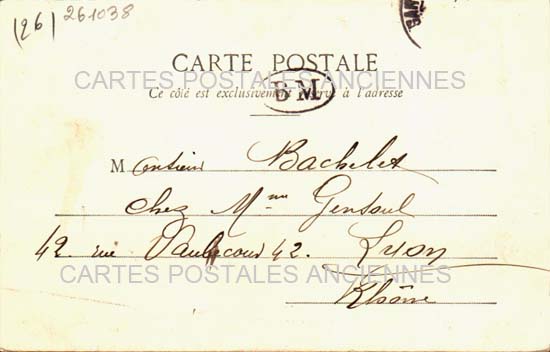 (26) 261038
CARTE POSTALE
CARTES POSTALES ANCIENNES
Ce côté est exclusivement réservé à l'adresse
BM
Monsieur Bachelet
chez Mme Gensoul
42 rue Vaubecour 42. Lyon
CARTES POSTALES ANCIENNES
Rhône